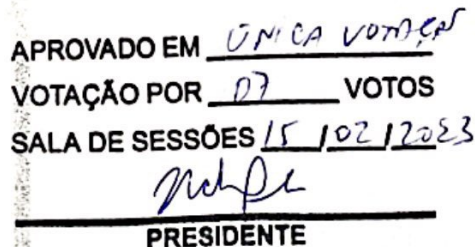 APROVADO EM ÚNICA VOTAÇÃO
VOTAÇÃO POR 07 VOTOS
SALA DE SESSÕES 15 / 02 / 2023
PRESIDENTE